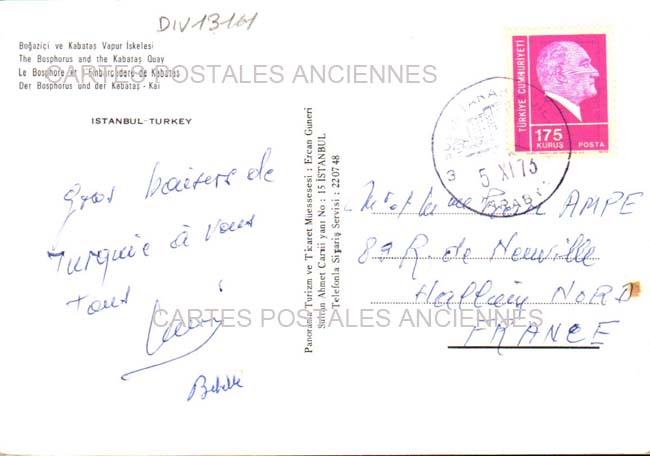 DIV13161
Boğaziçi ve Kabataş Vapur İskelesi
The Bosphorus and the Kabataş Quay
Le Bosphore et l'Embarcadère de Kabataş
Der Bosphorus und der Kabataş - Kai
CARTES POSTALES ANCIENNES
ISTANBUL - TURKEY
Gros baisers de
Turquie à vous
tous
Panorama Turizm ve Ticaret Müessesesi : Ercan Güneri
Sultan Ahmet Camii yanı No : 15 İSTANBUL
Telefonla Sipariş Servisi : 22 07 48
TÜRKİYE CUMHURİYETİ
175
KURUŞ POSTA
3
5 XI 75
AMPE
89 R. de Neuville
Halluin NORD
FRANCE
CARTES POSTALES ANCIENNES